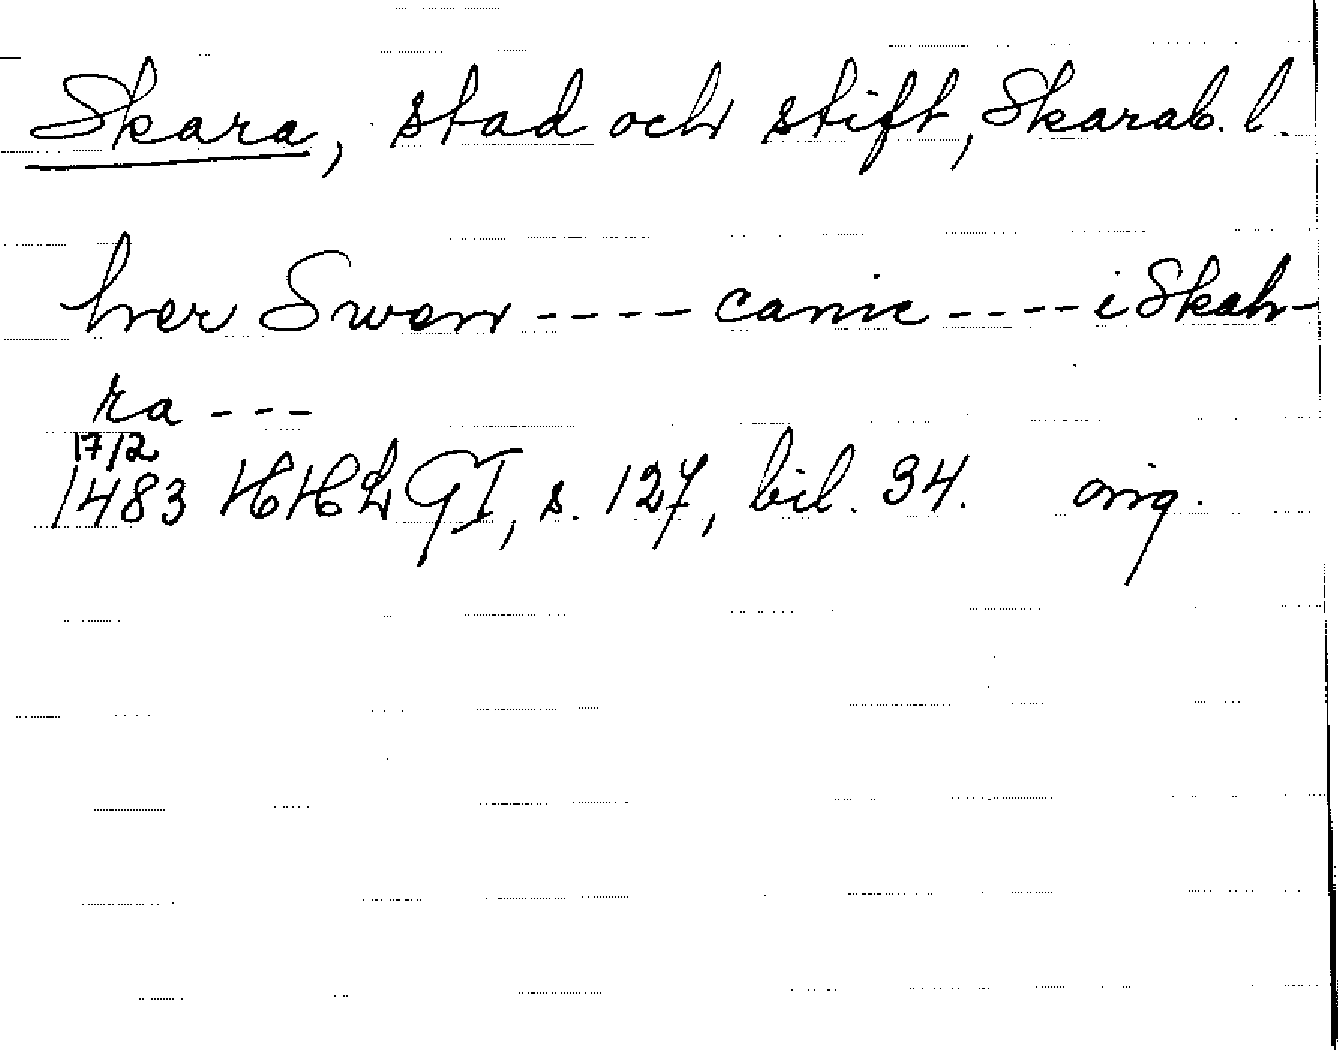 Skara, stad och stift, Skarab. l.
her Swen ---- canic ---- i Skah-
ra ---
17/2
1483 HH G I, s. 127, bil. 34. orig.